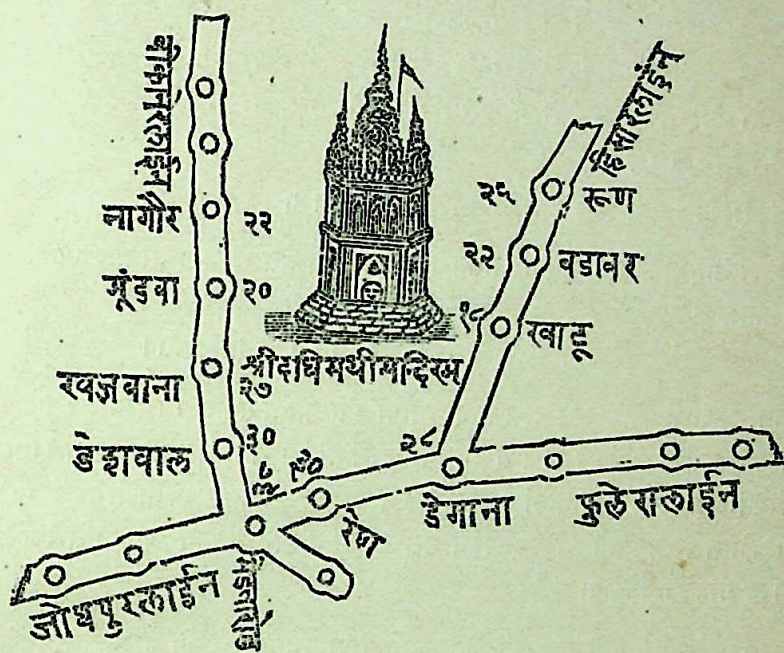 बीकानेरलाईन
हिसारलाईन
नागौर २२
मूंडवा २०
खजवाना २७
डेशवाल ३०
श्रीदधिमथीमन्दिरम्
२६ रूण
२२ वडावर
१८ खाटू
२८
डेगाना
रेण
फुलेरालाईन
जोधपुरलाईन
मेडतारोड